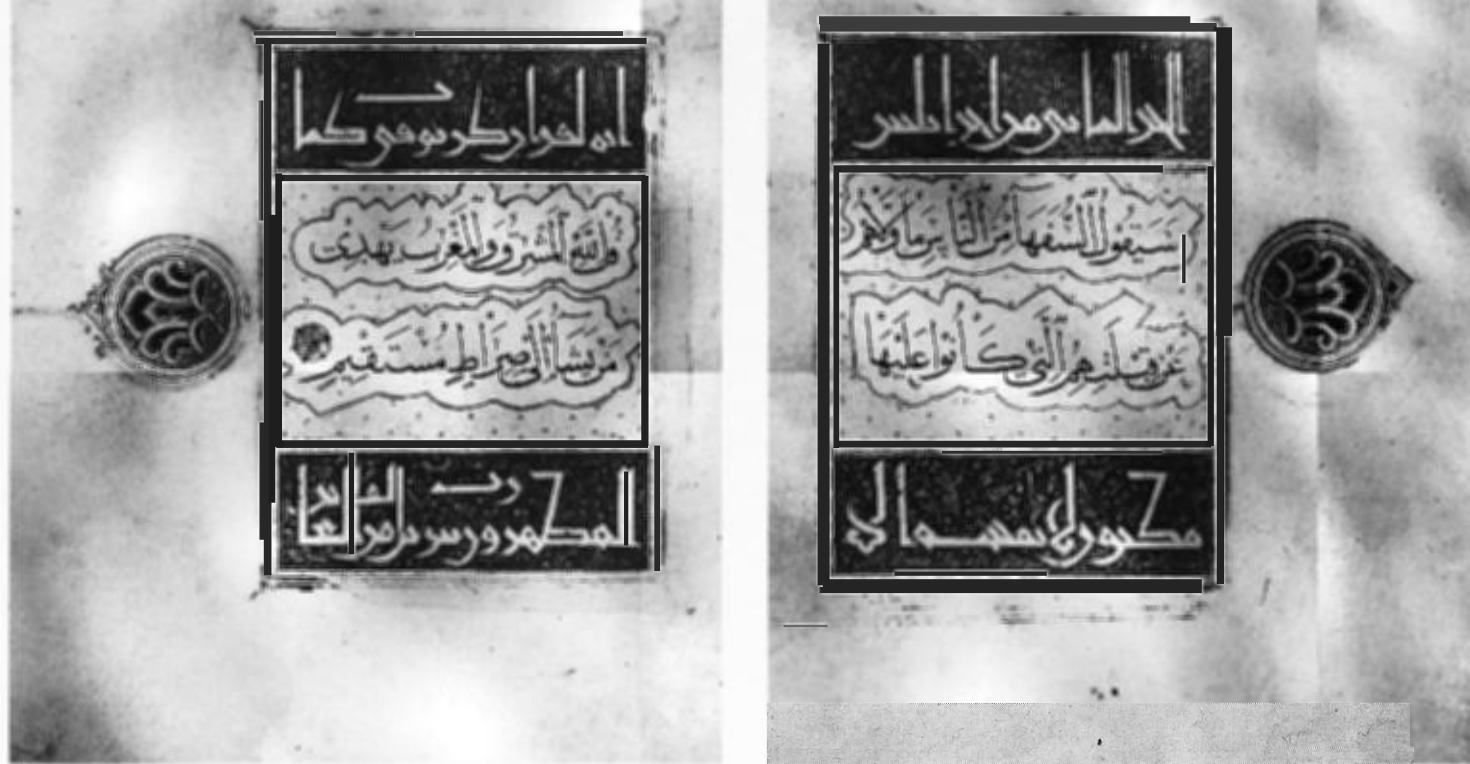 الجز الثانى من اجزا ثلثين
سَيَقُولُ السُّفَهَاءُ مِنَ النَّاسِ مَا وَلَّاهُمْ
عَنْ قِبْلَتِهِمُ الَّتِى كَانُوا عَلَيْهَا
مكنون لا يمسه الا
انه لقران كريم فى كتاب
قُلْ لِلَّهِ الْمَشْرِقُ وَالْمَغْرِبُ يَهْدِى
مَنْ يَشَاءُ إِلَى صِرَاطٍ مُسْتَقِيمٍ
المطهرون تنزيل من رب العالمين